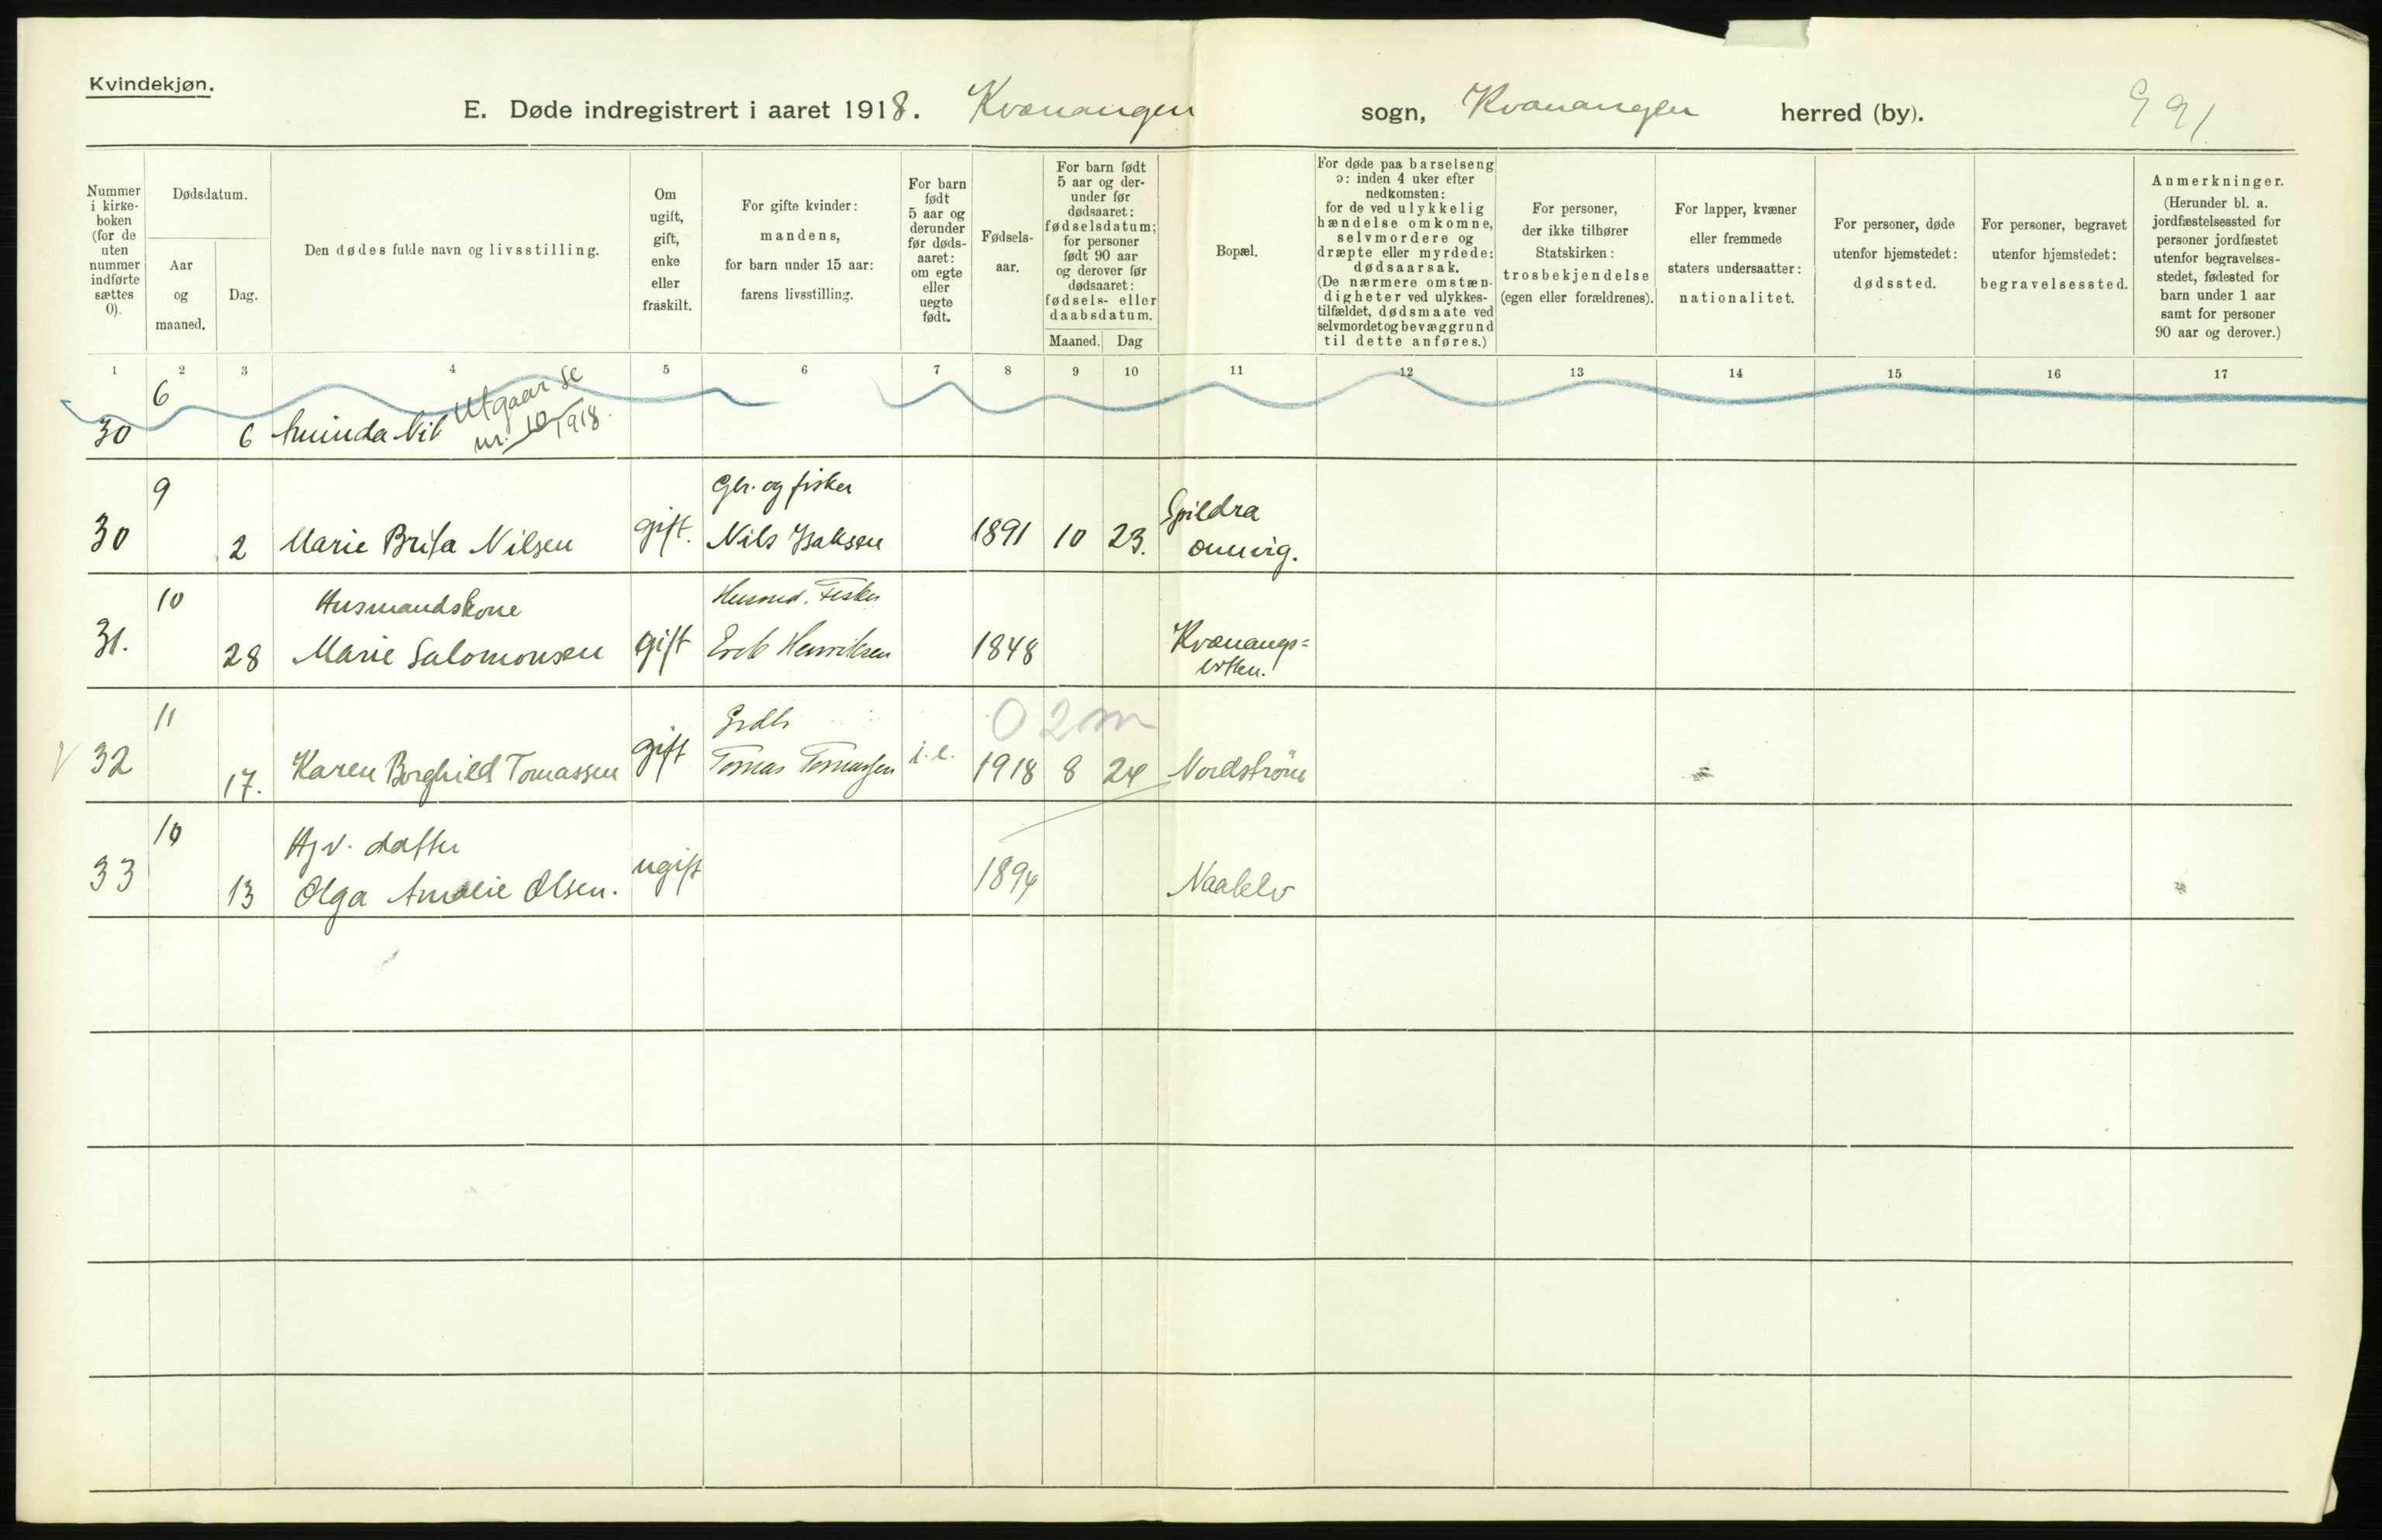 Kvindekjøn.
E. Døde indregistrert i aaret 1918. Kvænangen sogn, Kvænangen herred (by). 991
Nummer i kirke-boken (for de uten nummer indførte sættes 0).
Dødsdatum.
Aar og maaned.
Dag.
Den dødes fulde navn og livsstilling.
Om ugift, gift, enke eller fraskilt.
For gifte kvinder: mandens, for barn under 15 aar: farens livsstilling.
For barn født 5 aar og derunder før døds-aaret: om egte eller uegte født.
Fødsels-aar.
For barn født 5 aar og der-under før dødsaaret: fødselsdatum; for personer født 90 aar og derover før dødsaaret: fødsels- eller daabsdatum.
Maaned. Dag
Bopæl.
For døde paa barselseng ɔ: inden 4 uker efter nedkomsten: for de ved ulykkelig hændelse omkomne, selvmordere og dræpte eller myrdede: dødsaarsak. (De nærmere omstæn-digheter ved ulykkes-tilfældet, dødsmaate ved selvmordet og bevæggrund til dette anføres.)
For personer, der ikke tilhører Statskirken: trosbekjendelse (egen eller forældrenes).
For lapper, kvæner eller fremmede staters undersaatter: nationalitet.
For personer, døde utenfor hjemstedet: dødssted.
For personer, begravet utenfor hjemstedet: begravelsessted.
Anmerkninger. (Herunder bl. a. jordfæstelsessted for personer jordfæstet utenfor begravelses-stedet, fødested for barn under 1 aar samt for personer 90 aar og derover.)
1 2 3 4 5 6 7 8 9 10 11 12 13 14 15 16 17
6 Utgaar se
30 6 Nil nr. 10 1918.
9 Gbr. og fisker
30 2 Marie Brita Nilsen gift. Nils Isaksen 1891 10 23. Spildra
10 Husmandskone Husmd. Fisker
31. 28 Marie Salomonsen gift Erik Henriksen 1848 Kvænangs=
botten.
11 0 2 m
V 32 17. Karen Borghild Tomassen gift Tomas Tomassen i.e. 1918 8 24 Nordström
10 datter
33 13 Olga Amalie Olsen. ugift 1894 Naalelv